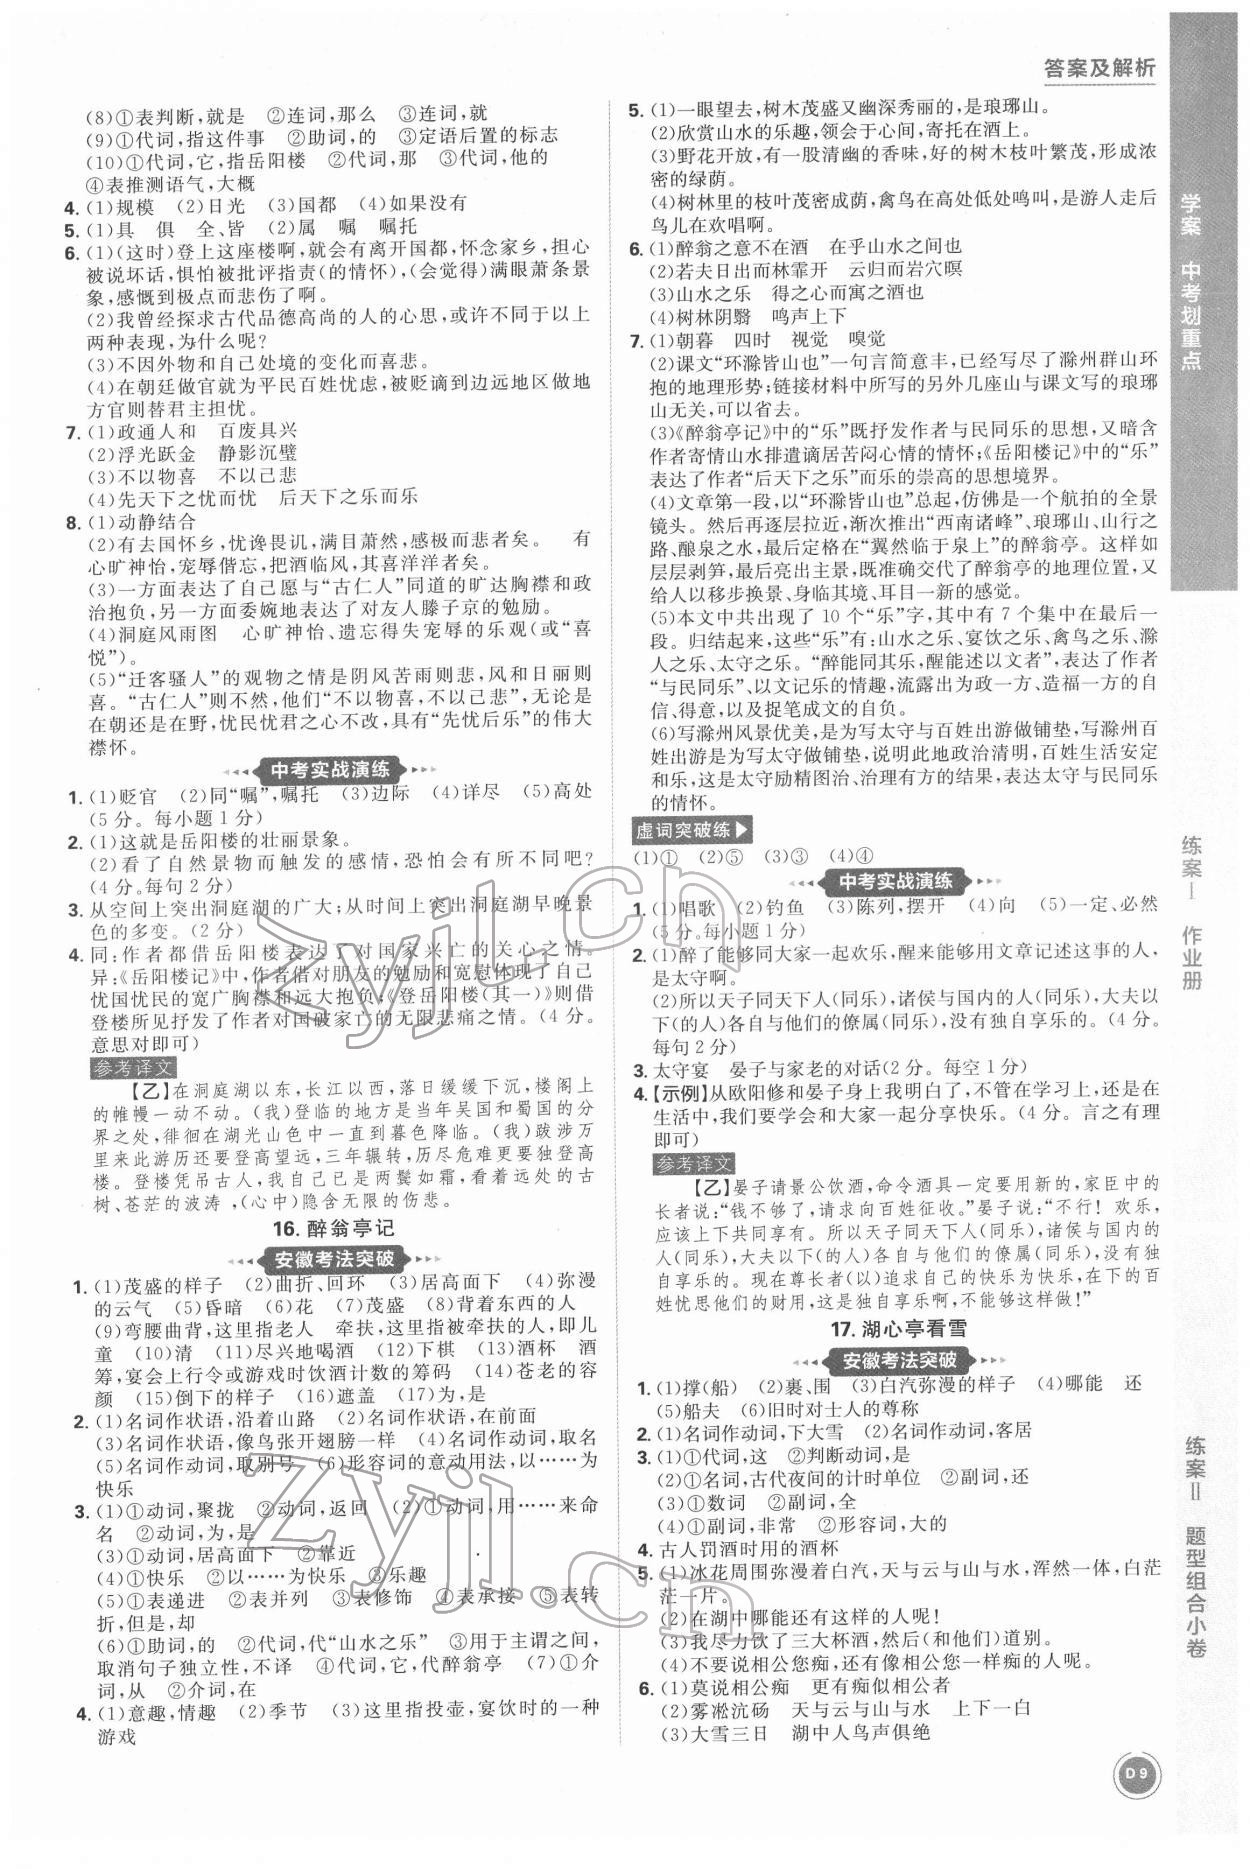 答案及解析
(8)①表判断,就是　②连词,那么　③连词,就
(9)①代词,指这件事　②助词,的　③定语后置的标志
(10)①代词,它,指岳阳楼　②代词,那　③代词,他的
④表推测语气,大概
4. (1)规模　(2)日光　(3)国都　(4)如果没有
5. (1)具　俱　全、皆　(2)属　嘱　嘱托
6. (1)(这时)登上这座楼啊,就会有离开国都,怀念家乡,担心
被说坏话,惧怕被批评指责(的情怀),(会觉得)满眼萧条景
象,感慨到极点而悲伤了啊。
(2)我曾经探求古代品德高尚的人的心思,或许不同于以上
两种表现,为什么呢?
(3)不因外物和自己处境的变化而喜悲。
(4)在朝廷做官就为平民百姓忧虑,被贬谪到边远地区做地
方官则替君主担忧。
7. (1)政通人和　百废具兴
(2)浮光跃金　静影沉璧
(3)不以物喜　不以己悲
(4)先天下之忧而忧　后天下之乐而乐
8. (1)动静结合
(2)有去国怀乡,忧谗畏讥,满目萧然,感极而悲者矣。　有
心旷神怡,宠辱偕忘,把酒临风,其喜洋洋者矣。
(3)一方面表达了自己愿与“古仁人”同道的旷达胸襟和政
治抱负,另一方面委婉地表达了对友人滕子京的勉励。
(4)洞庭风雨图　心旷神怡、遗忘得失宠辱的乐观(或“喜
悦”)。
(5)“迁客骚人”的观物之情是阴风苦雨则悲,风和日丽则
喜。“古仁人”则不然,他们“不以物喜,不以己悲”,无论是
在朝还是在野,忧民忧君之心不改,具有“先忧后乐”的伟大
襟怀。
中考实战演练
1. (1)贬官　(2)同“嘱”,嘱托　(3)边际　(4)详尽　(5)高处
(5分。每小题1分)
2. (1)这就是岳阳楼的壮丽景象。
(2)看了自然景物而触发的感情,恐怕会有所不同吧?
(4分。每句2分)
3. 从空间上突出洞庭湖的广大;从时间上突出洞庭湖早晚景
色的多变。(2分)
4. 同:作者都借岳阳楼表达了对国家兴亡的关心之情。
异:《岳阳楼记》中,作者借对朋友的勉励和宽慰体现了
忧国忧民的宽广胸襟和远大抱负;《登岳阳楼(其一)》则借
登楼所见抒发了作者对国破家亡的无限悲痛之情。(4分。
意思对即可)
参考译文
【乙】在洞庭湖以东,长江以西,落日缓缓下沉,楼阁上
的帷幔一动不动。(我)登临的地方是当年吴国和蜀国的分
界之处,徘徊在湖光山色中一直到暮色降临。(我)跋涉万
里来此游历还要登高望远,三年辗转,历尽危难更要独登高
楼。登楼凭吊古人,我自己已是两鬓如霜,看着远处的古
树、苍茫的波涛,(心中)隐含无限的伤悲。
16. 醉翁亭记
安徽考法突破
1. (1)茂盛的样子　(2)曲折、回环　(3)居高面下　(4)弥漫
的云气　(5)昏暗　(6)花　(7)茂盛　(8)背着东西的人
(9)弯腰曲背,这里指老人　牵扶,这里指被牵扶的人,即儿
童　(10)清　(11)尽兴地喝酒　(12)下棋　(13)酒杯　酒
筹,宴会上行令或游戏时饮酒计数的筹码　(14)苍老的容
颜　(15)倒下的样子　(16)遮盖　(17)为,是
2. (1)名词作状语,沿着山路　(2)名词作状语,在前面
(3)名词作状语,像鸟张开翅膀一样　(4)名词作动词,取名
(5)名词作动词,取别号　(6)形容词的意动用法,以……为
快乐
3. (1)①动词,聚拢　②动词,返回　(2)①动词,用……来命
名　②动词,为,是
(3)①动词,居高面下　②靠近
(4)①快乐　②以……为快乐　③乐趣
(5)①表递进　②表并列　③表修饰　④表承接　⑤表转
折,但是,却
(6)①助词,的　②代词,代“山水之乐”　③用于主谓之间,
取消句子独立性,不译　④代词,它,代醉翁亭　(7)①介
词,从　②介词,在
4. (1)意趣,情趣　(2)季节　(3)这里指投壶,宴饮时的一种
游戏
5. (1)一眼望去,树木茂盛又幽深秀丽的,是琅琊山。
(2)欣赏山水的乐趣,领会于心间,寄托在酒上。
(3)野花开放,有一股清幽的香味,好的树木枝叶繁茂,形成浓
密的绿荫。
(4)树林里的枝叶茂密成荫,禽鸟在高处低处鸣叫,是游人走后
鸟儿在欢唱啊。
6. (1)醉翁之意不在酒　在乎山水之间也
(2)若夫日出而林霏开　云归而岩穴暝
(3)山水之乐　得之心而寓之酒也
(4)树林阴翳　鸣声上下
7. (1)朝暮　四时　视觉　嗅觉
(2)课文“环滁皆山也”一句言简意丰,已经写尽了滁州群山环
抱的地理形势;链接材料中所写的另外几座山与课文写的琅琊
山无关,可以省去。
(3)《醉翁亭记》中的“乐”既抒发作者与民同乐的思想,又暗含
作者寄情山水排遣谪居苦闷心情的情怀;《岳阳楼记》中的“乐”
表达了作者“后天下之乐”而乐的崇高的思想境界。
(4)文章第一段,以“环滁皆山也”总起,仿佛是一个航拍的全景
镜头。然后再逐层拉近,渐次推出“西南诸峰”、琅琊山、山行之
路、酿泉之水,最后定格在“翼然临于泉上”的醉翁亭。这样如
层层剥笋,最后亮出主景,既准确交代了醉翁亭的地理位置,又
给人以移步换景、身临其境、耳目一新的感觉。
(5)本文中共出现了10个“乐”字,其中有7个集中在最后一
段。归结起来,这些“乐”有:山水之乐、宴饮之乐、禽鸟之乐、滁
人之乐、太守之乐。“醉能同其乐,醒能述以文者”,表达了作者
“与民同乐”、以文记乐的情趣,流露出为政一方、造福一方的自
信、得意,以及捉笔成文的自负。
(6)写滁州风景优美,是为写太守与百姓出游做铺垫,写滁州百
姓出游是为写太守做铺垫,说明此地政治清明,百姓生活安定
和乐,这是太守励精图治、治理有方的结果,表达太守与民同乐
的情怀。
虚词突破练
(1)①　(2)⑤　(3)③　(4)④
中考实战演练
1. (1)唱歌　(2)钓鱼　(3)陈列,摆开　(4)向　(5)一定、必然
(5分。每小题1分)
2. (1)醉了能够同大家一起欢乐,醒来能够用文章记述这事的人,
是太守啊。
(2)所以天子同天下人(同乐),诸侯与国内的人(同乐),大夫以
下(的人)各自与他们的僚属(同乐),没有独自享乐的。(4分。
每句2分)
3. 太守宴　晏子与家老的对话(2分。每空1分)
4. 【示例】从欧阳修和晏子身上我明白了,不管在学习上,还是在
生活中,我们要学会和大家一起分享快乐。(4分。言之有理
即可)
参考译文
【乙】晏子请景公饮酒,命令酒具一定要用新的,家臣中的
长者说:“钱不够了,请求向百姓征收。”晏子说:“不行!欢乐,
应该上下一同享有。所以天子同天下人(同乐),诸侯与国内的
人(同乐),大夫以下的人各自与他们的僚属(同乐),没有独
自享乐的。现在尊长者(以)追求自己的快乐为快乐,在下的百
姓忧思他们的财用,这是独自享乐啊,不能够这样做!”
17. 湖心亭看雪
安徽考法突破
1. (1)撑(船)　(2)裹、围　(3)白汽弥漫的样子　(4)哪能　还
(5)船夫　(6)旧时对士人的尊称
2. (1)名词作动词,下大雪　(2)名词作动词,客居
3. (1)①代词,这　②判断动词,是
(2)①名词,古代夜间的计时单位　②副词,还
(3)①数词　②副词,全
(4)①副词,非常　②形容词,大的
4. 古人罚酒时用的酒杯
5. (1)冰花周围弥漫着白汽,天与云与山与水,浑然一体,白茫
茫一片。
(2)在湖中哪能还有这样的人呢!
(3)我尽力饮了三大杯酒,然后(和他们)道别。
(4)不要说相公您痴,还有像相公您一样痴的人呢。
6. (1)莫说相公痴　更有痴似相公者
(2)雾凇沆砀　天与云与山与水　上下一白
(3)大雪三日　湖中人鸟声俱绝
学案　中考划重点
练案Ⅰ　作业册
练案Ⅱ　题型组合小卷
D9
zyjl.cn
zyjl.cn